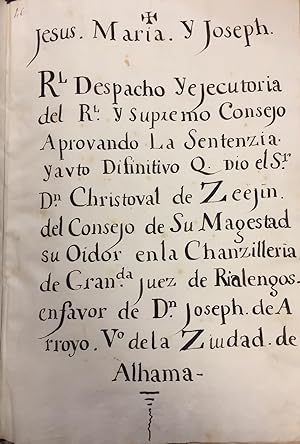 Jesus. Maria. y Joseph.
R.L Despacho Y ejecutoria
del R.L y supremo Consejo
Aprovando La Sentenzia.
y avto Difinitivo Q. Dio el S.r
D.n Christoval de Zeejin.
del Consejo de Su Magestad
su Oidor en la Chanzilleria
de Gran.da juez de Rialengos.
en favor de D.n Joseph. de A
rroyo. V.o de la Ziudad. de
Alhama-